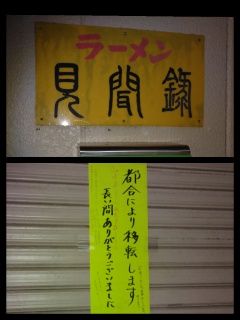 ラーメン
見聞録
都合により移転します
長い間ありがとうございました